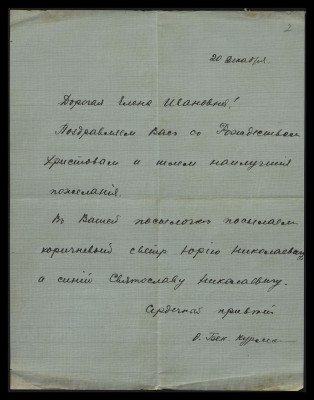 2
20 Декабря.
Дорогая Елена Ивановна!
Поздравляем Васъ со Рождествомъ
Христовымъ и шлем наилучшия
пожелания.
Въ Вашей посылочкѣ посылаем
коричневый светр Юрию Николаевичу,
а синий Святославу Николаевичу.
Сердечный привѣтъ